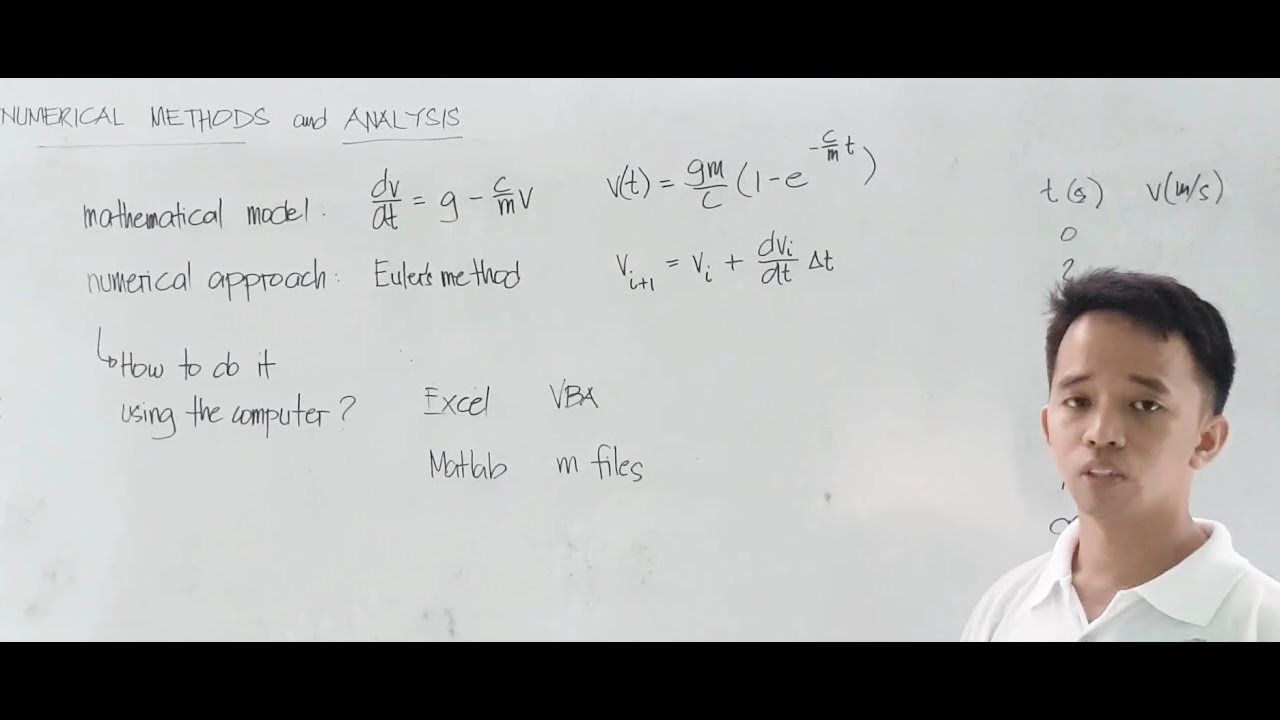 NUMERICAL METHODS and ANALYSIS
mathematical model: dv/dt = g - c/m v v(t) = gm/c (1 - e^(-c/m t))
t(s) v(m/s)
0
2
numerical approach: Euler's method v_{i+1} = v_i + dv_i/dt Δt
↳ How to do it
using the computer?
Excel VBA
Matlab m files